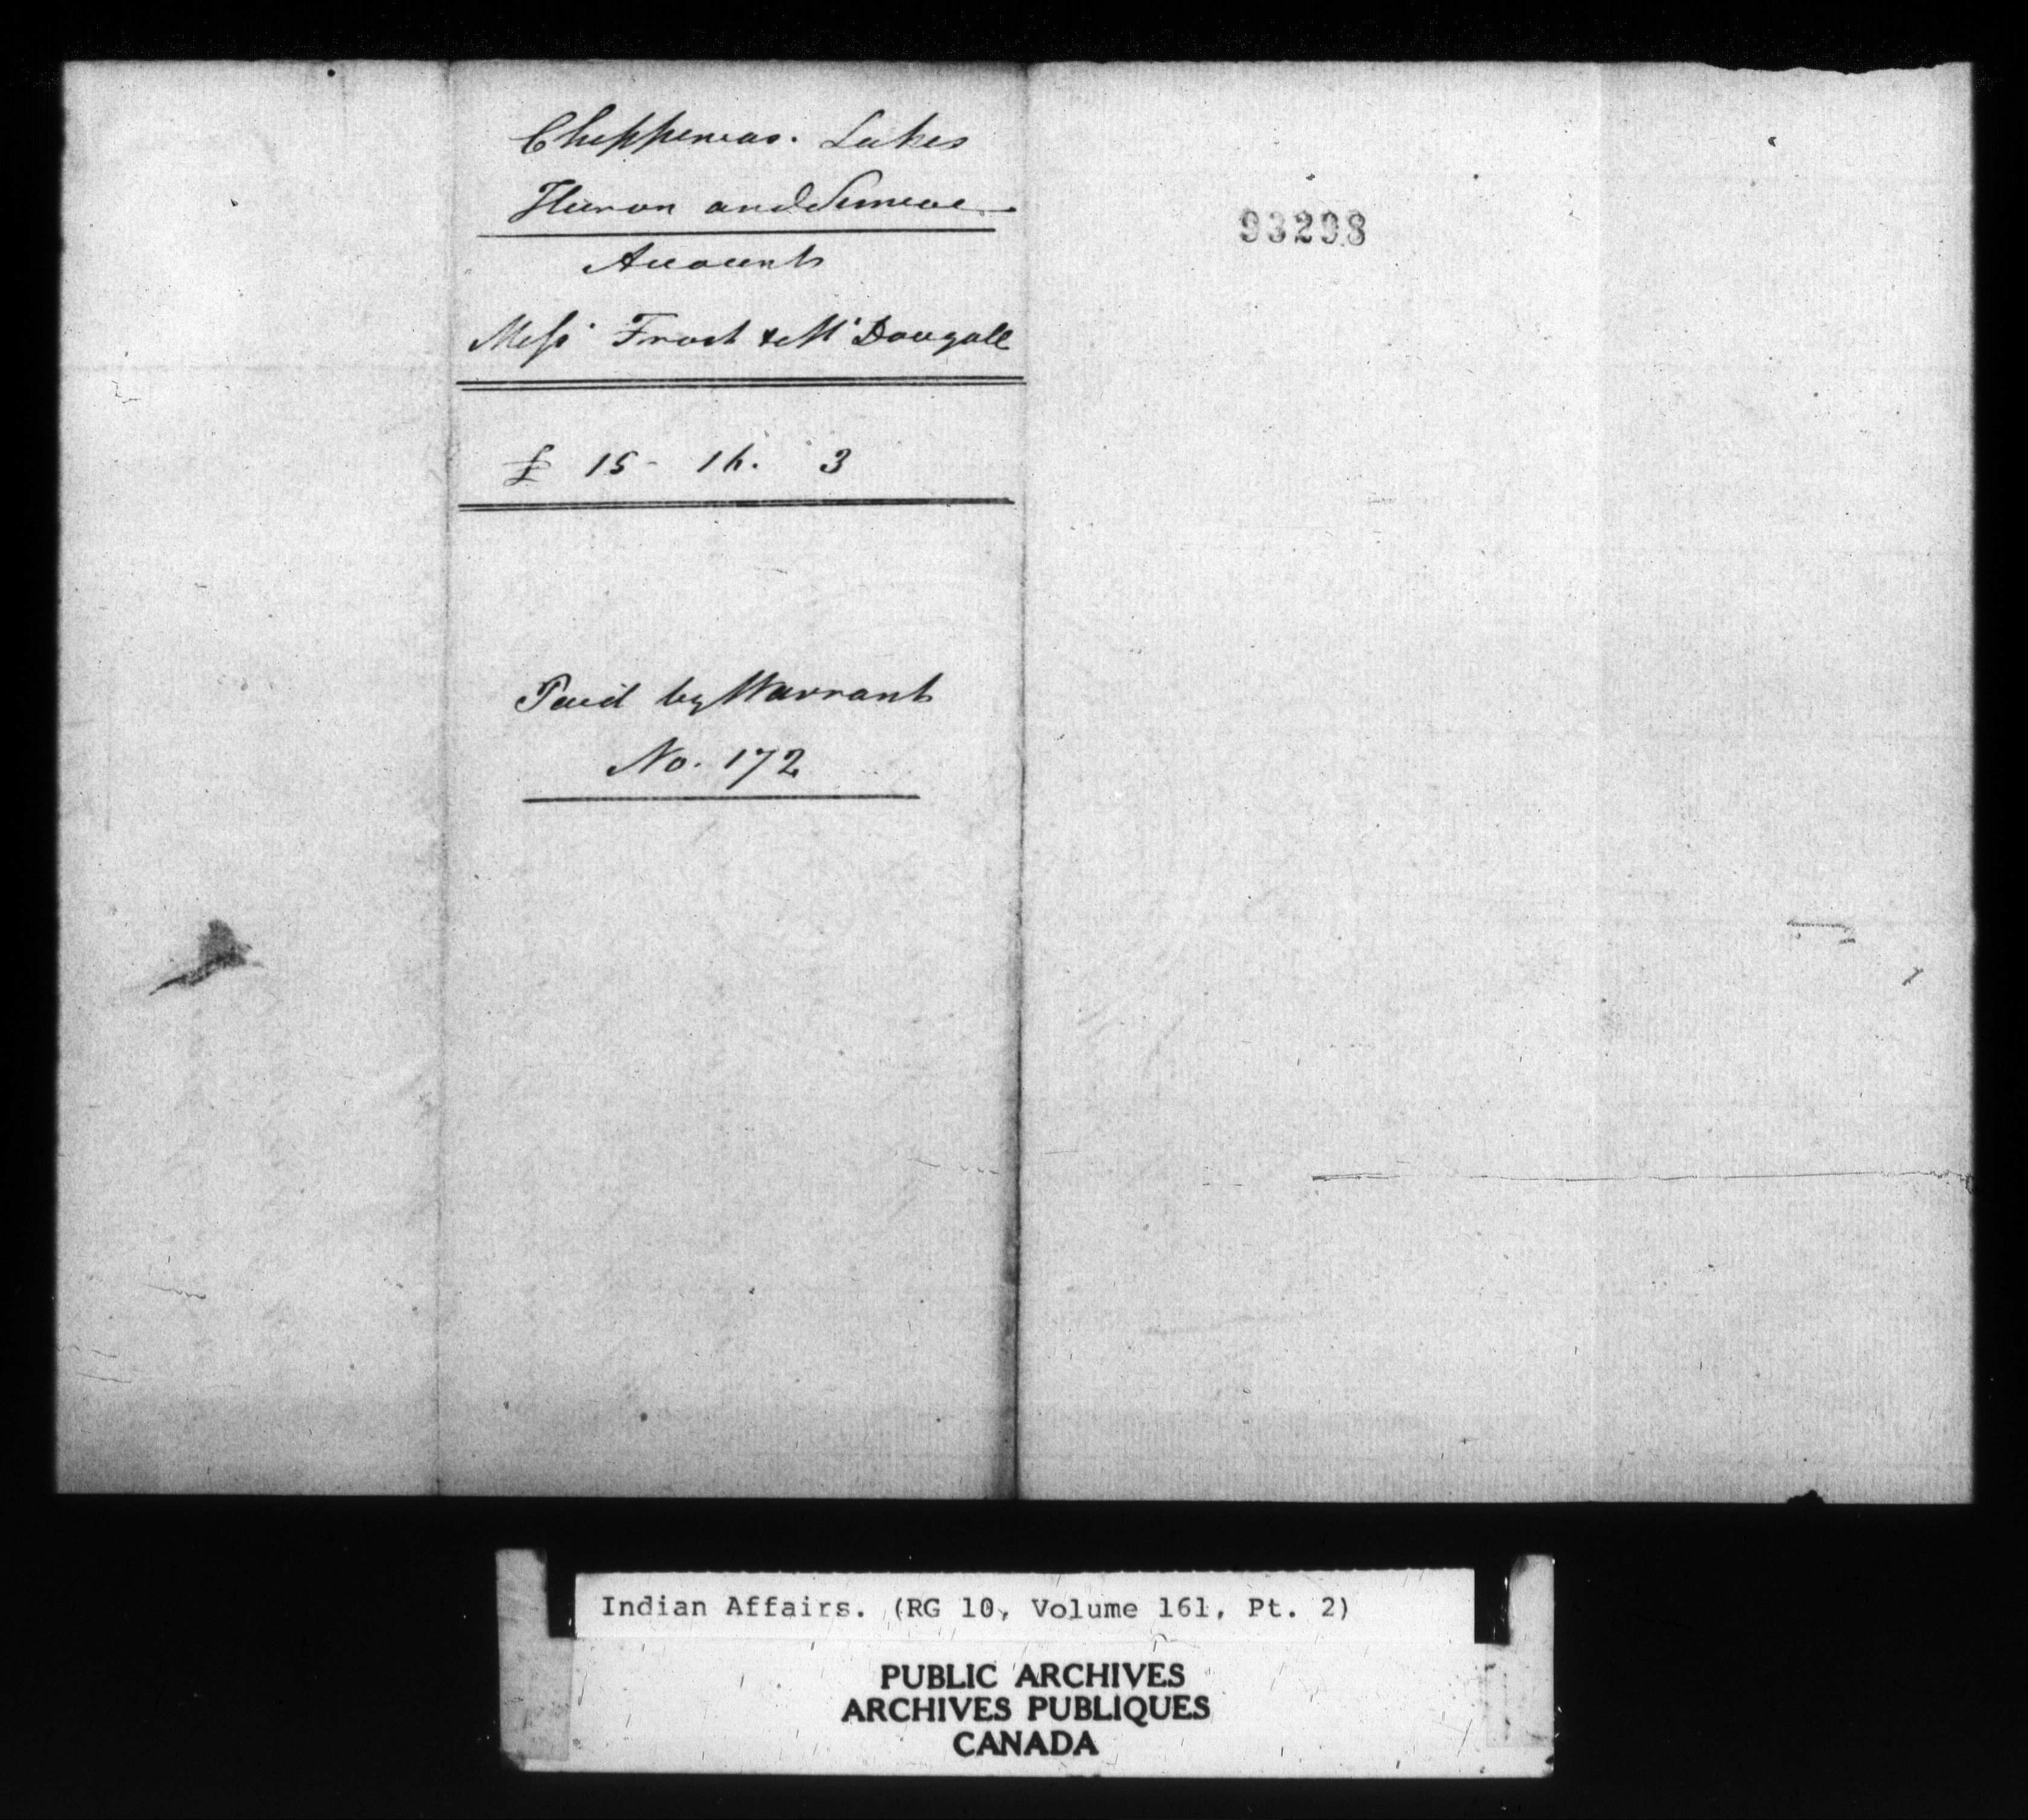 Chippewas. Lakes
Huron and Simcoe
Account
Messrs Frost & McDougall
£ 15 - 16. 3
Paid by Warrant
No. 172
93298
Indian Affairs. (RG 10, Volume 161, Pt. 2)
PUBLIC ARCHIVES
ARCHIVES PUBLIQUES
CANADA